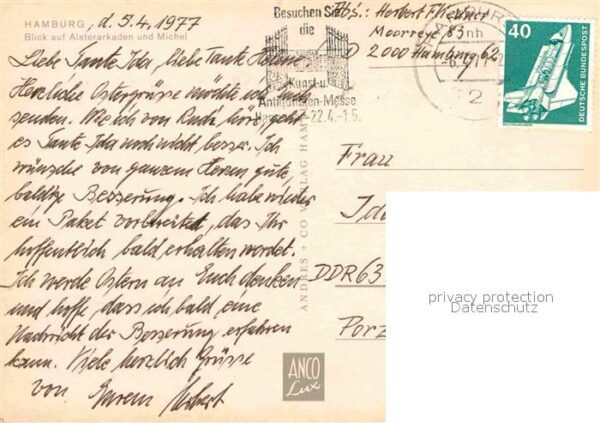 HAMBURG, d. 5.4.1977
Blick auf Alsterarkaden und Michel
Liebe Tante Ida, liebe Tante Helene
Herzliche Ostergrüsse möchte ich Euch
senden. Wie ich von Ruth hörte, geht
es Tante Ida noch nicht besser. Ich
wünsche von ganzem Herzen gute,
baldige Besserung. Ich habe wieder
ein Paket vorbereitet, das Ihr
hoffentlich bald erhalten werdet.
Ich werde Ostern an Euch denken
und hoffe, dass ich bald eine
Nachricht der Besserung erfahren
kann. Viele herzlich Grüsse
von Eurem Herbert
Besuchen Sie
die
Kunst- u.
Antiquitäten-Messe
22.4.-1.5.
Abs.: Herbert
Moorreye 83
D 2000 Hamburg 62
40
DEUTSCHE BUNDESPOST
2
ANDRES + CO VERLAG HAMBURG
Frau
Ida
DDR 63
Porz
ANCO
Lux
privacy protection
Datenschutz